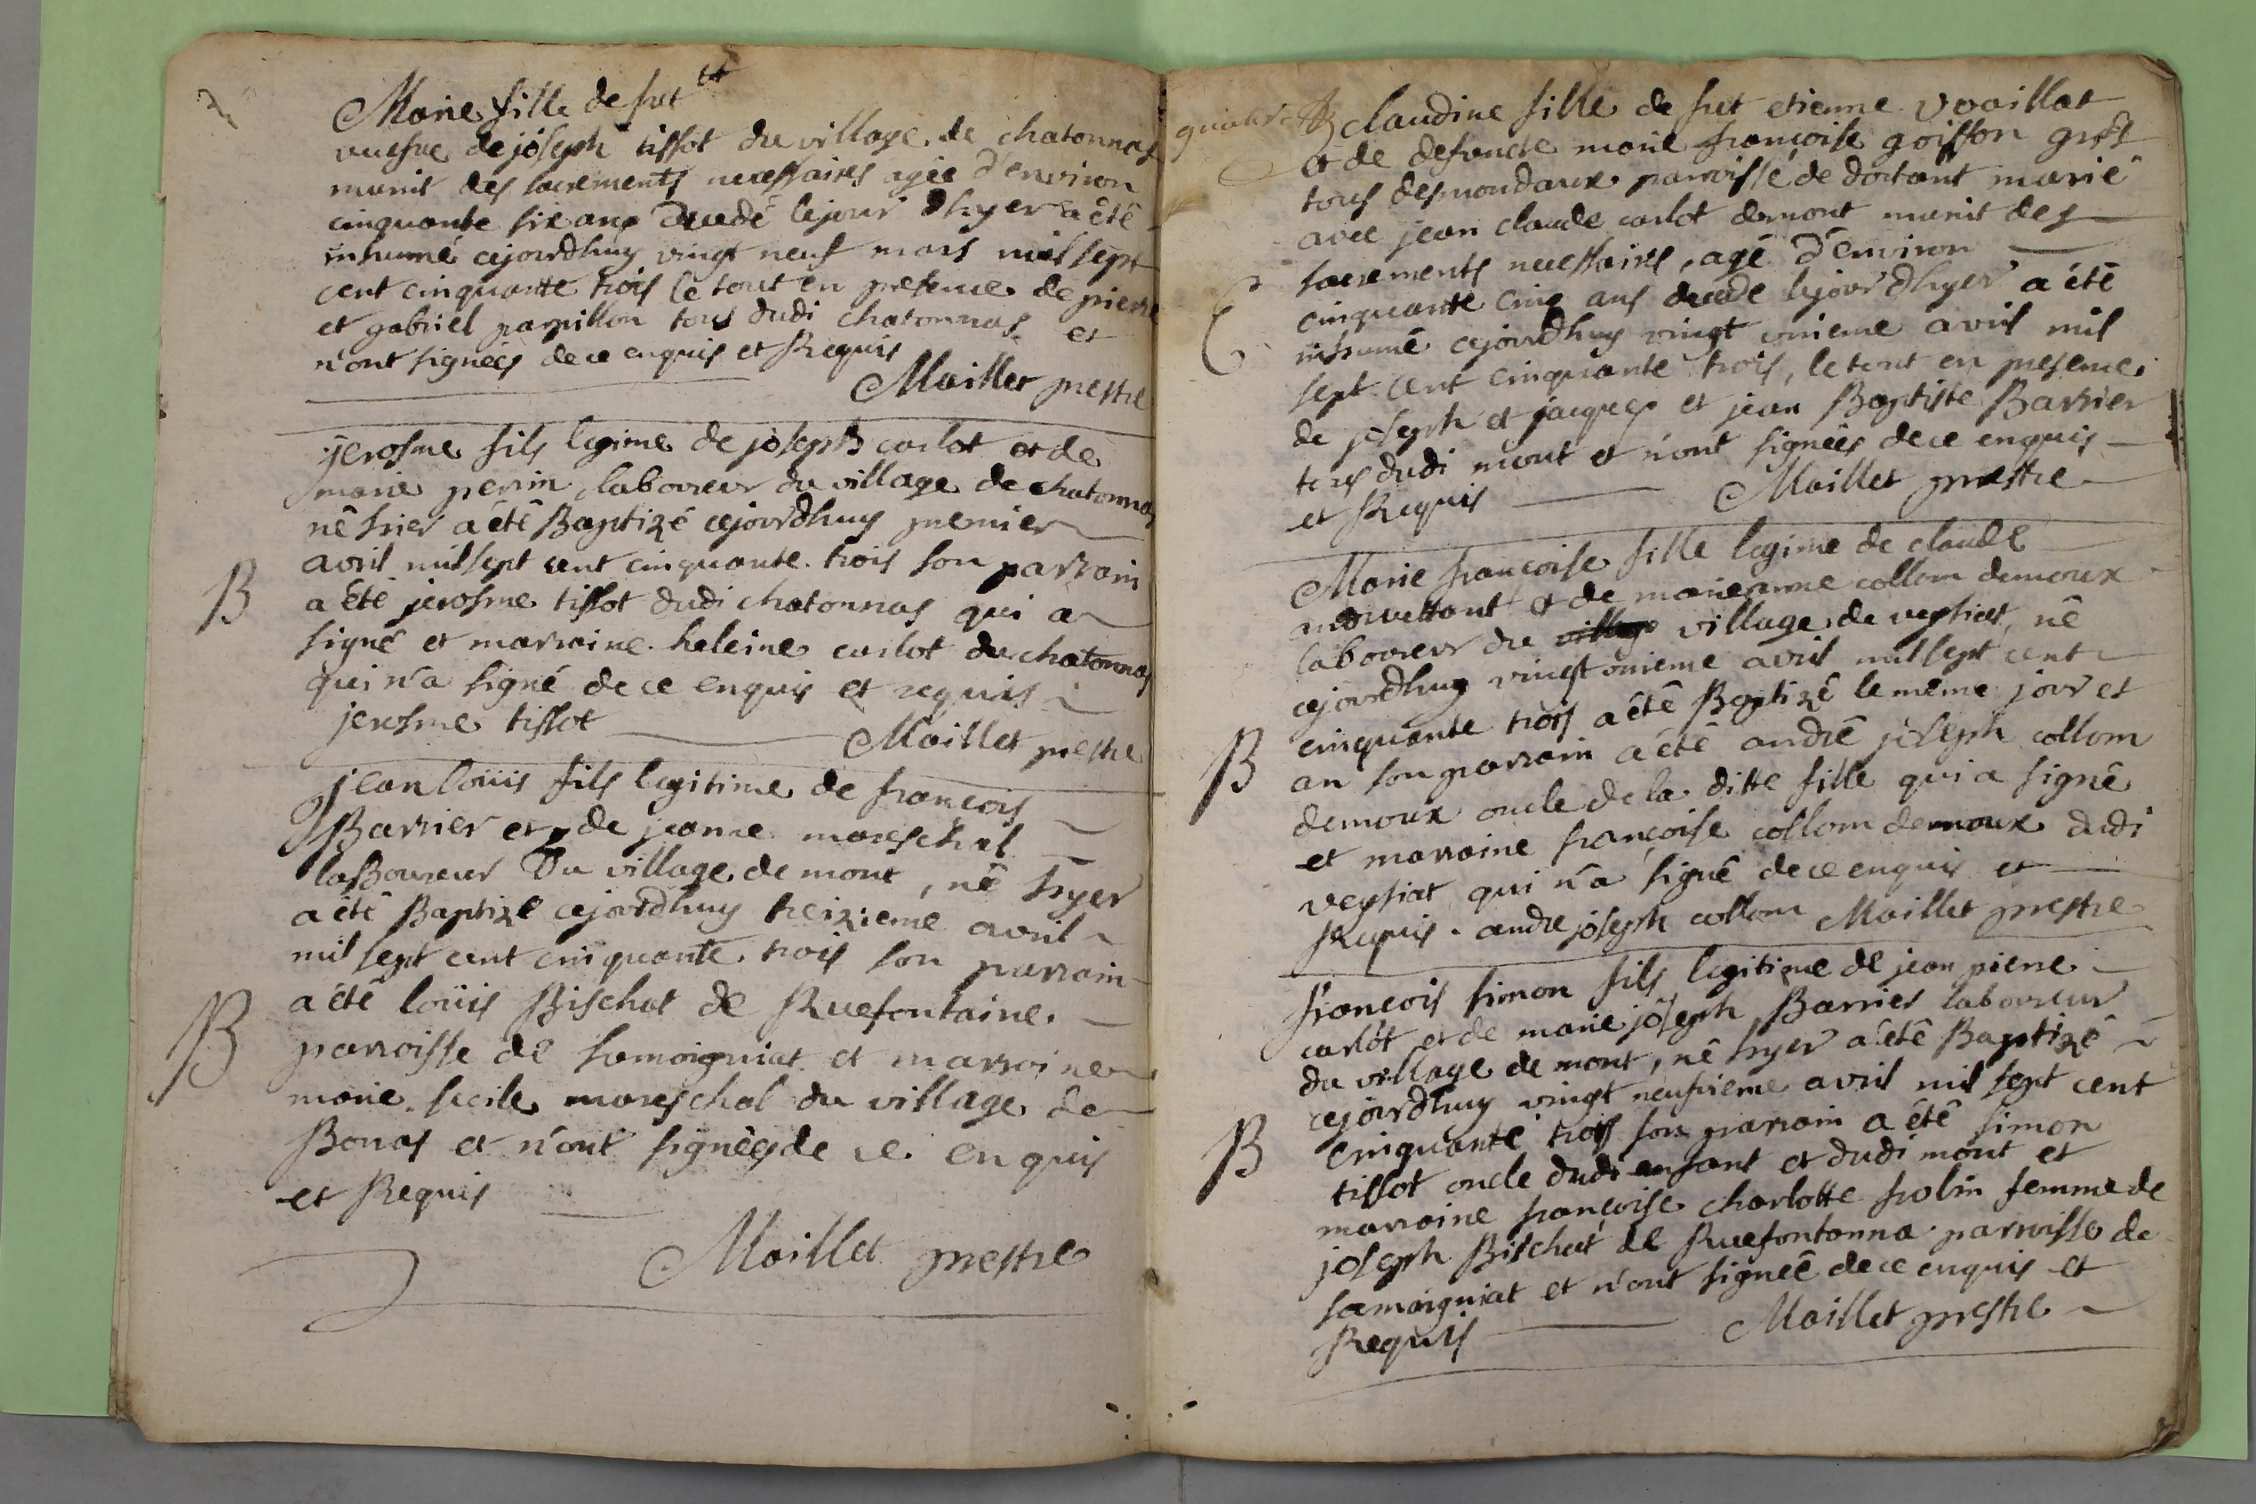 Marie fille de fut et
veufve de joseph tissot du village de chatonnas
munit des sacrements necessaires agée d'environ
cinquante six ans decedé lejour d'hyer a êtê
inhumé cejourdhuy vingt neuf mars mil sept
cent cinquante trois le tout en presence de pierre
et gabriel papillon tous dudi chatonnas et
n'ont signées de ce enquis et Requis
Maillet prestre
jerosme fils legime de joseph carlot et de
marie perrin laboureur du village de chatonnas
nê hier a êtê Baptizé cejourdhuy premier
avril mil sept cent cinquante trois son parrain
B
a êtê jerosme tissot dudi chatonnas qui a
signé et marraine heleine carlot du chatonnas
qui n'a signé de ce enquis et requis
jerosme tissot
Maillet prestre
jean loüis fils legitime de françois
Barrier et de jeanne mareschal
laBoureur Du village de mont, nê hyer
a êtê Baptizé cejourdhuy treizieme avril
mil sept cent cinquante trois son parrain
B
a êtê loüis Bischat de Ruefontaine
parroisse de samoigniat et marraine
marie sicile mareschal du village de
Bonas et n'ont signées de ce enquis
et Requis
Maillet prestre
quatre
claudine fille de fut etienne Vuaillat
et de defuncte marie françoise goisson
tous desmondaux parroisse de dortant marié
avec jean claude carlot demont munit des
sacrements necessaires, agé d'environ
cinquante cinq ans decede lejour d'hyer a êtê
inhumê cejourdhuy vingt onieme avril mil
sept cent cinquante trois, le tout en presence
de joseph et jacques et jean Baptiste Barrier
tous dudi mont et n'ont signées de ce enquis
et Requis
Maillet prestre
Marie françoise fille legime de claude
et de marieanne collom demoux
laboureur du village village de veysiat, nê
cejourdhuy vingt onieme avril mil sept cent
cinquante trois a êtê Baptizê le même jour et
B
an son parrain a êtê andrê joseph collom
demoux oncle de la ditte fille qui a signê
et marraine françoise collom demoux dudi
veysiat qui n'a signê de ce enquis et
Requis. andre joseph collom Maillet prestre
françois simon fils legitime de jean pierre
carlot et de marie joseph Barrier laboureur
du village de mont, nê hyer a êtê Baptizé
cejourdhuy vingt neufvieme avril mil sept cent
B
cinquante trois son parrain a êtê simon
tissot oncle dudi enfant et dudi mont et
marraine françoise charlotte frobin femme de
joseph Bischat de Ruefontanna parroisse de
samoigniat et n'ont signeê de ce enquis et
Requis
Maillet prestre